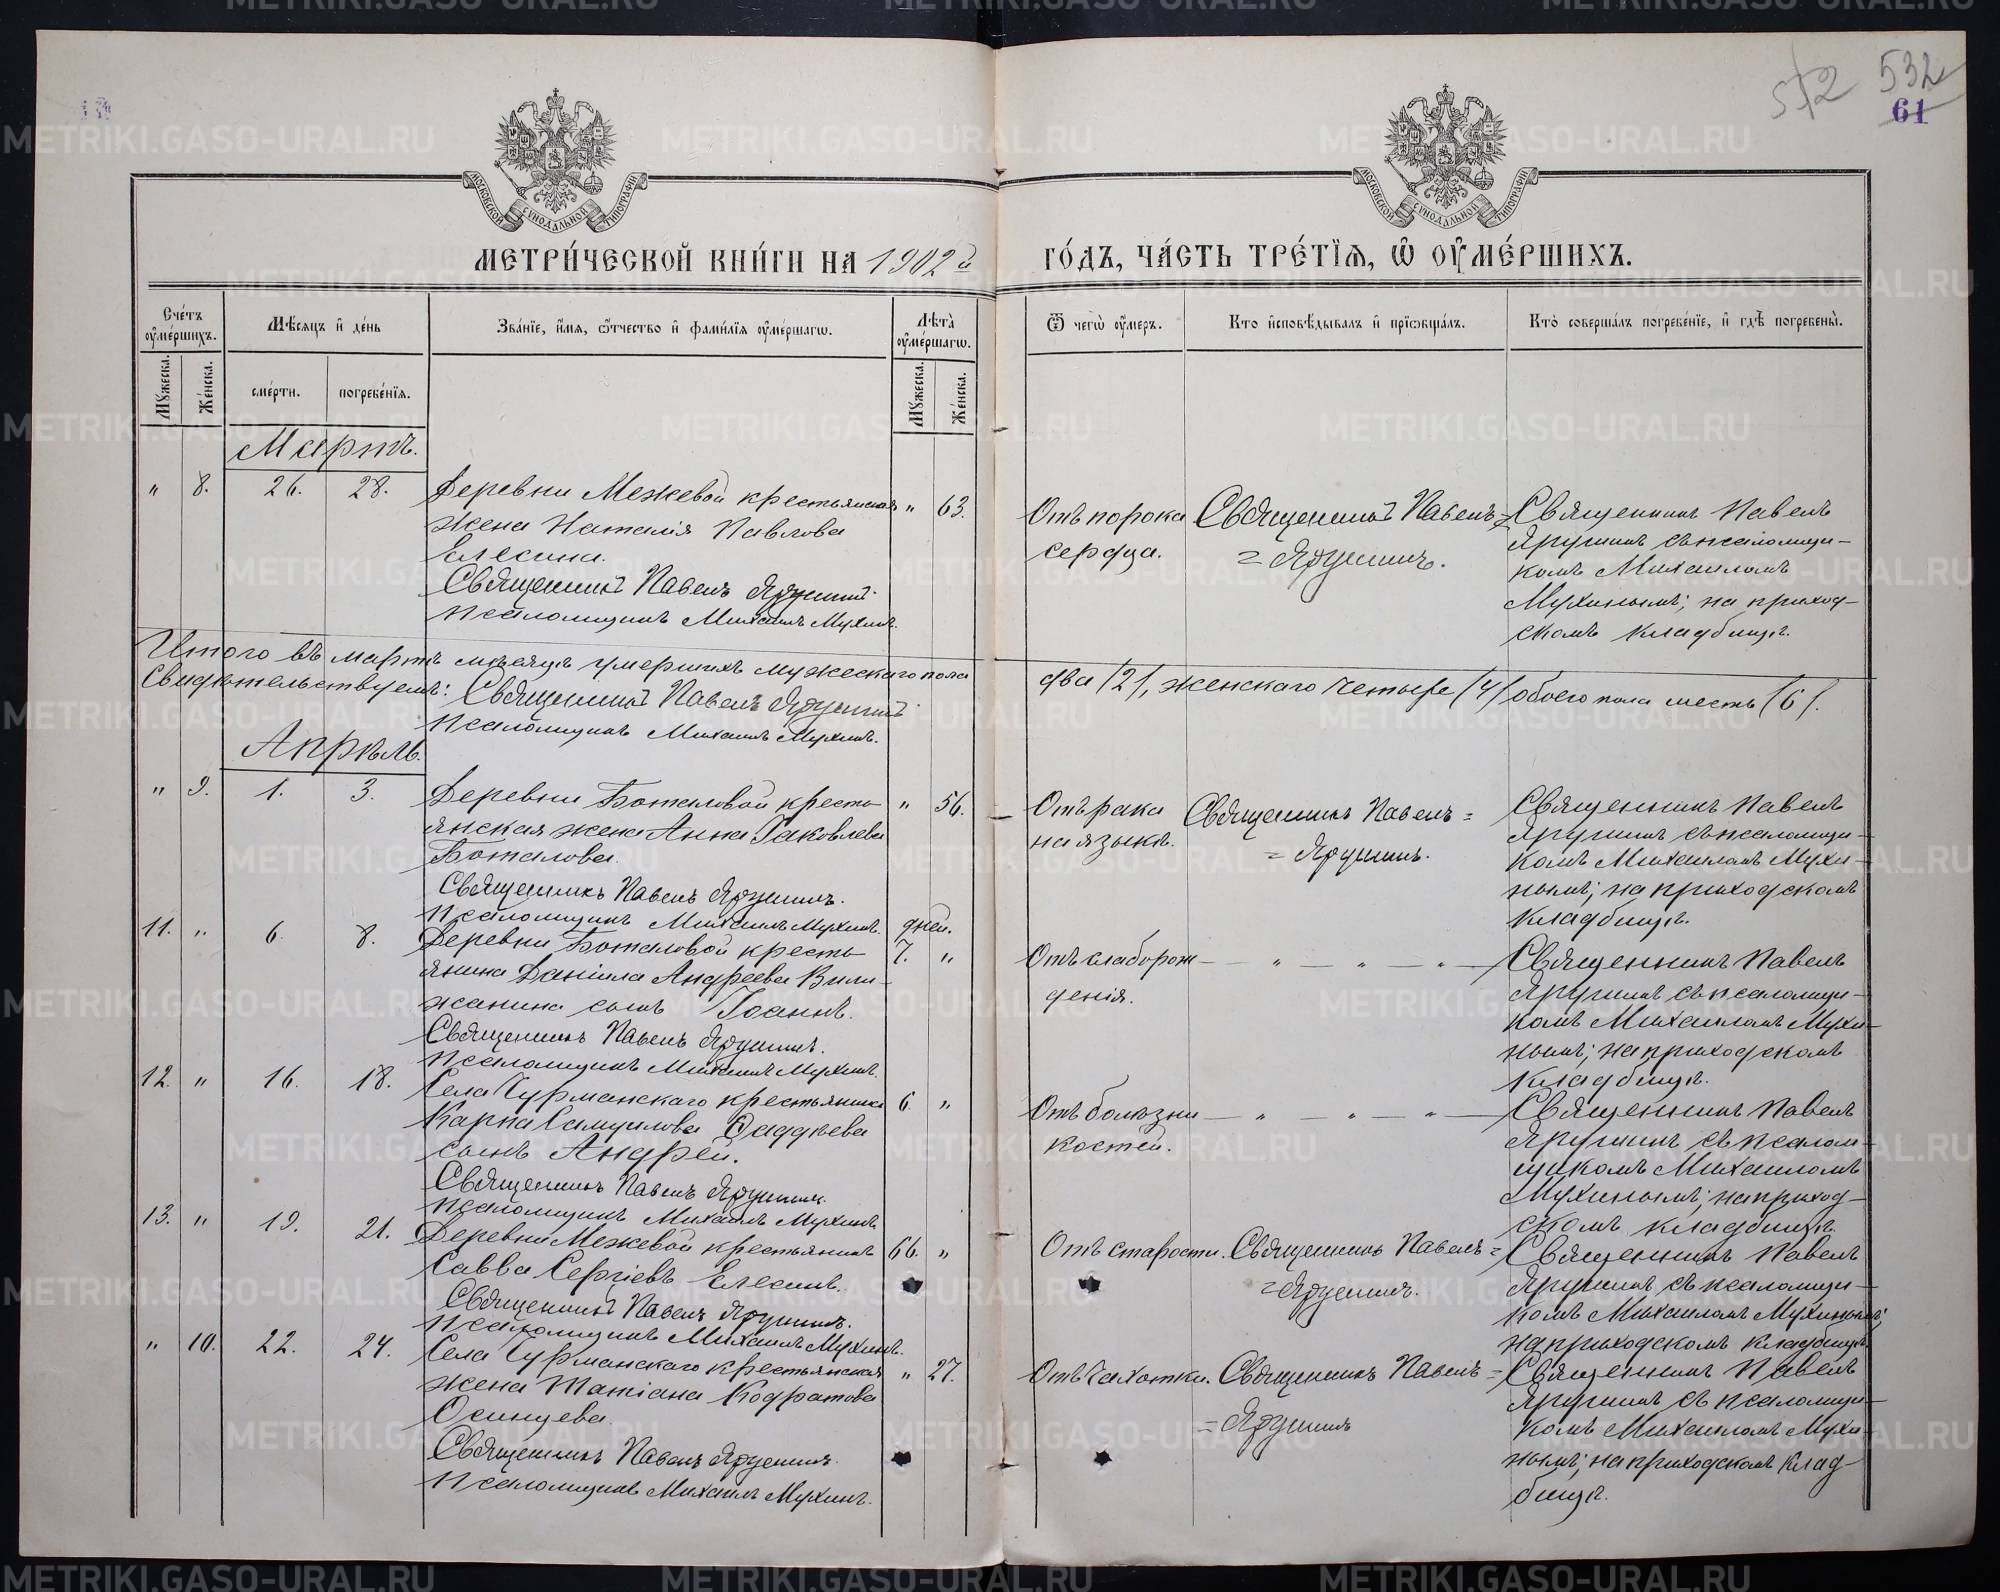 532
61
МОСКОВСКОЙ СѴНОДАЛЬНОЙ ТИПОГРАФІИ
МОСКОВСКОЙ СѴНОДАЛЬНОЙ ТИПОГРАФІИ
МЕТРИ́ЧЕСКОЙ КНИ́ГИ НА 1902й ГО́ДЪ, ЧА́СТЬ ТРЕ́ТІѦ, Ѡ ОУМЕ́РШИХЪ.
Сче́тъ оуме́ршихъ.
Мꙋжеска.
Же́нска.
Мѣсяцъ и де́нь
сме́рти.
погребе́нїѧ.
Зва́нїе, и҆́мѧ, ѻ҆́тчество и҆ фами́лїѧ оуме́ршагѡ.
Лѣта̀ оуме́ршагѡ.
Мꙋжеска.
Же́нска.
Ѿ чегѡ̀ оу҆́меръ.
Кто̀ и҆сповѣ́дывалъ и҆ прїѡбща́лъ.
Кто̀ соверша́лъ погребе́нїе, и҆ гдѣ̀ погребены̀.
Мартъ.
" 8. 26. 28.
Деревни Межевой крестьянская
жена Наталія Павлова
Елесина.
Священникъ Павелъ Ярушинъ.
Псаломщикъ Михаилъ Мухинъ.
" 63.
Отъ порока
сердца.
Священникъ Павелъ =
= Ярушинъ.
Священникъ Павелъ
Ярушинъ съ псаломщи-
комъ Михаиломъ
Мухинымъ; на приход-
скомъ кладбищѣ.
Итого въ мартѣ мѣсяцѣ умершихъ мужескаго пола два /2/, женскаго четыре /4/ обоего пола шесть /6/.
Свидѣтельствуемъ: Священникъ Павелъ Ярушинъ.
Псаломщикъ Михаилъ Мухинъ.
Апрѣль.
" 9. 1. 3.
Деревни Боталовой кресть-
янская жена Анна Іаковлева
Боталова.
Священникъ Павелъ Ярушинъ.
Псаломщикъ Михаилъ Мухинъ.
" 56.
Отъ рака
на языкѣ.
Священникъ Павелъ =
= Ярушинъ.
Священникъ Павелъ
Ярушинъ съ псаломщи-
комъ Михаиломъ Мухи-
нымъ; на приходскомъ
кладбищѣ.
11. " 6. 8.
Деревни Боталовой кресть-
янина Даніила Андреева Вили-
жанина сынъ Іоаннъ.
Священникъ Павелъ Ярушинъ.
Псаломщикъ Михаилъ Мухинъ.
дней.
7. "
Отъ слаборож-
денія.
— " — " — " —
Священникъ Павелъ
Ярушинъ съ псаломщи-
комъ Михаиломъ Мухи-
нымъ; на приходскомъ
кладбищѣ.
12. " 16. 18.
Села Чурманскаго крестьянина
Карпа Самуилова Ѳаддѣева
сынъ Андрей.
Священникъ Павелъ Ярушинъ.
Псаломщикъ Михаилъ Мухинъ.
6. "
Отъ болѣзни
костей.
— " — " — " —
Священникъ Павелъ
Ярушинъ съ псалом-
щикомъ Михаиломъ
Мухинымъ; на приход-
скомъ кладбищѣ.
13. " 19. 21.
Деревни Межевой крестьянинъ
Савва Сергіевъ Елесинъ.
Священникъ Павелъ Ярушинъ.
Псаломщикъ Михаилъ Мухинъ.
66. "
Отъ старости.
Священникъ Павелъ =
= Ярушинъ.
Священникъ Павелъ
Ярушинъ съ псаломщи-
комъ Михаиломъ Мухинымъ;
на приходскомъ кладбищѣ.
" 10. 22. 24.
Села Чурманскаго крестьянская
жена Татіана Кодратова
Осинцева.
Священникъ Павелъ Ярушинъ.
Псаломщикъ Михаилъ Мухинъ.
" 27.
Отъ чахотки.
Священникъ Павелъ =
= Ярушинъ
Священникъ Павелъ
Ярушинъ съ псаломщи-
комъ Михаиломъ Мухи-
нымъ; на приходскомъ клад-
бищѣ.
METRIKI.GASO-URAL.RU